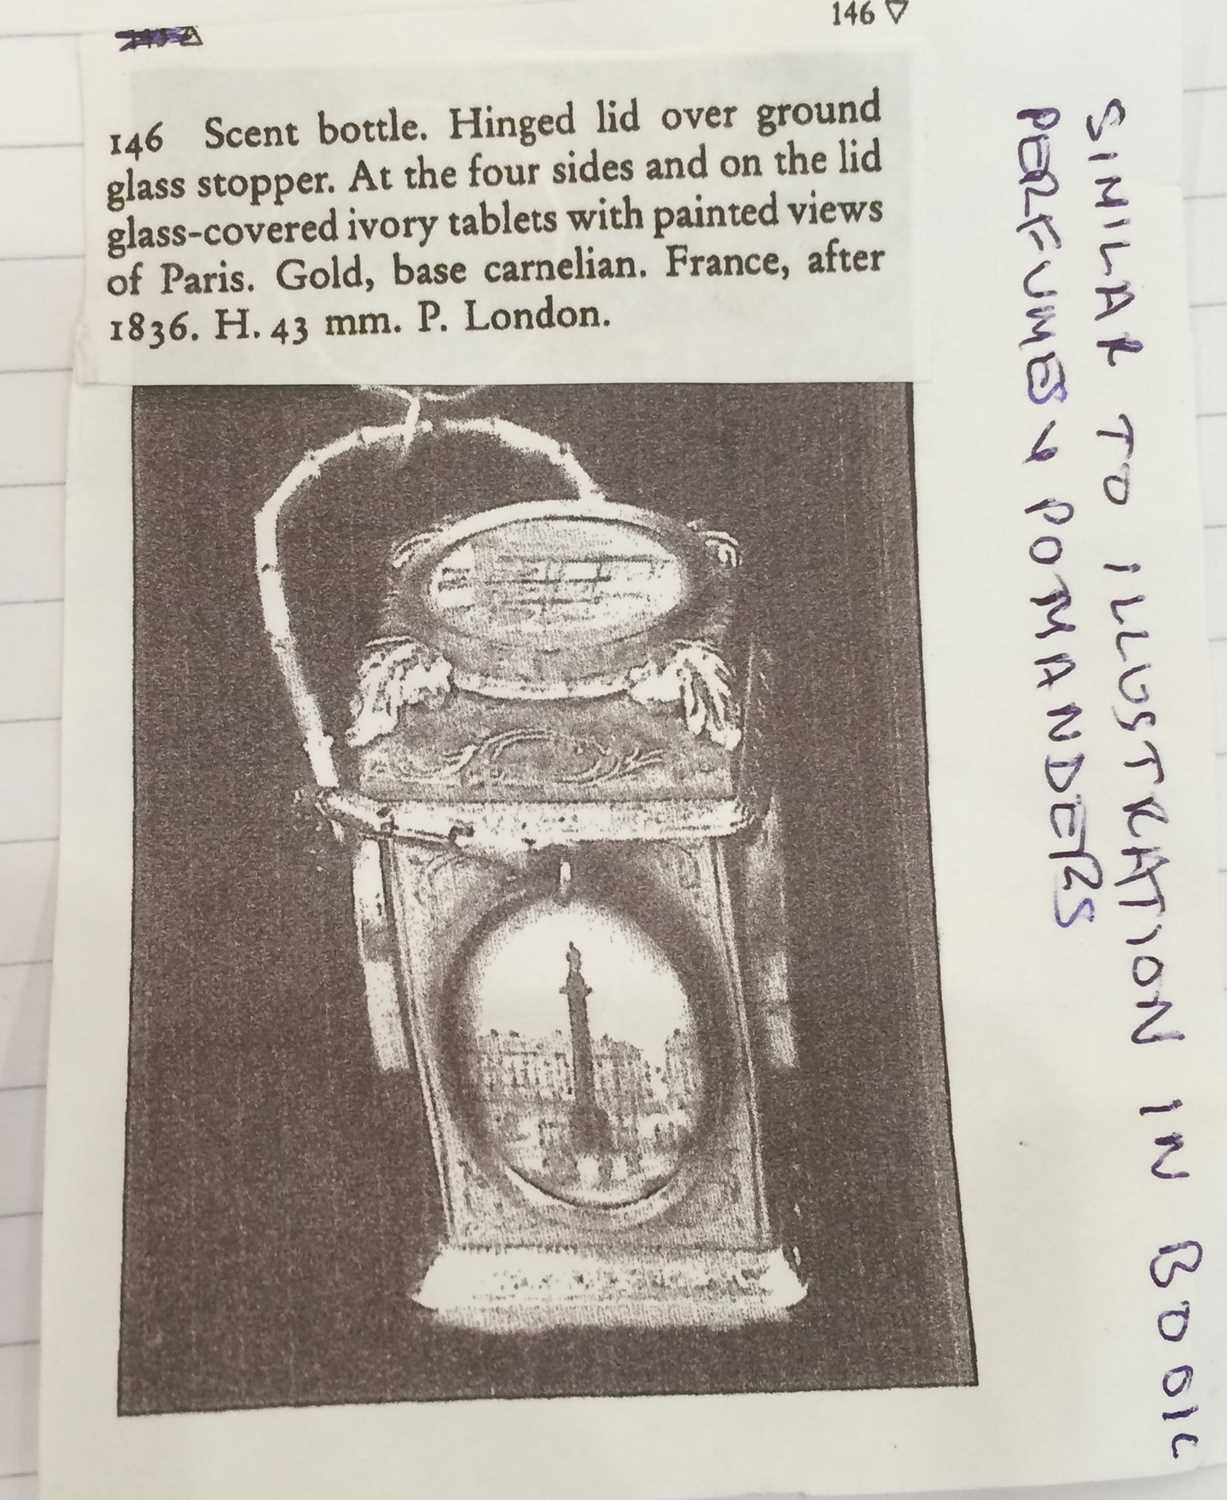 146 ▽
146 Scent bottle. Hinged lid over ground
glass stopper. At the four sides and on the lid
glass-covered ivory tablets with painted views
of Paris. Gold, base carnelian. France, after
1836. H. 43 mm. P. London.
SIMILAR TO ILLUSTRATION IN BOOK
PERFUMES & POMANDERS